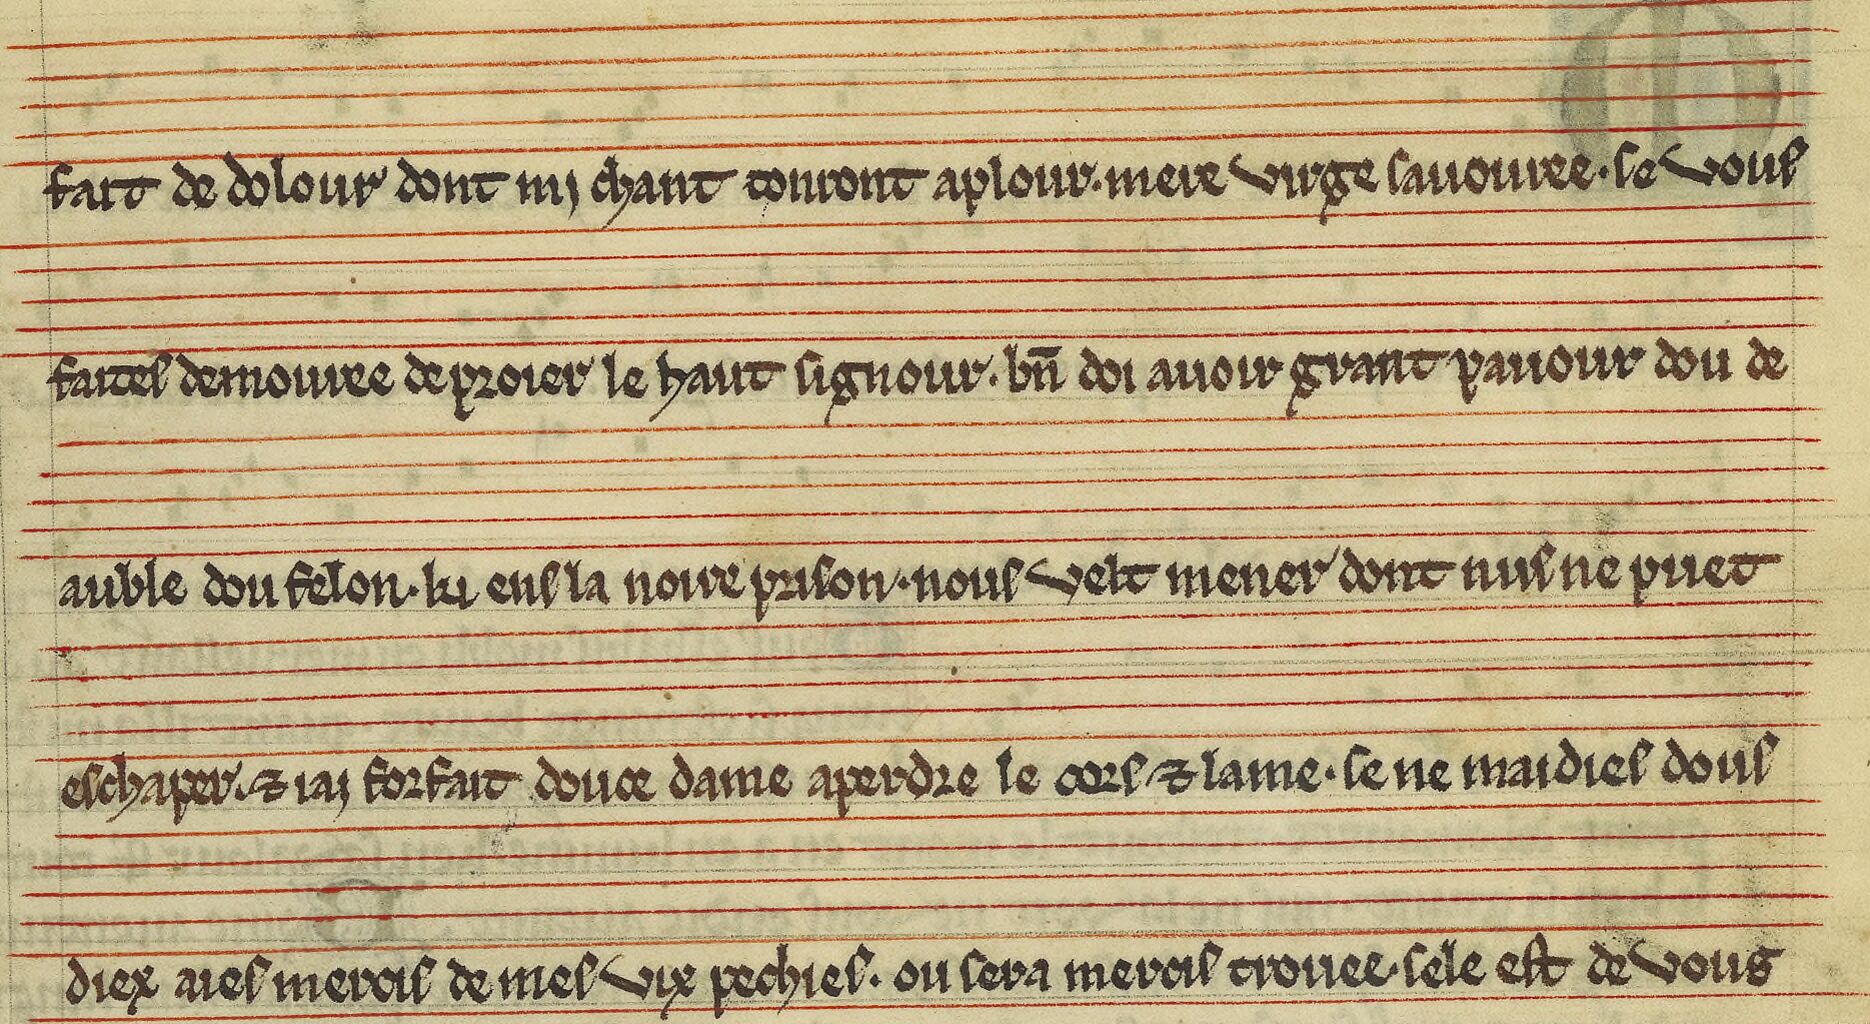 fait de dolour dont mj chant tonront aplour. mere virge sauouree. se vous
faites demouree de proier le haut signour. bn̄ doi auoir grant pauour dou de
auble dou felon. ki ens la noire prison. nous velt mener dont nuls ne puet
eschaper. ⁊ iaj forfait douce dame aperdre le cors ⁊ lame. se ne maidies dous
diex aies mercis de mes vix pechies. ou sera mercis trouee. sele est de vous